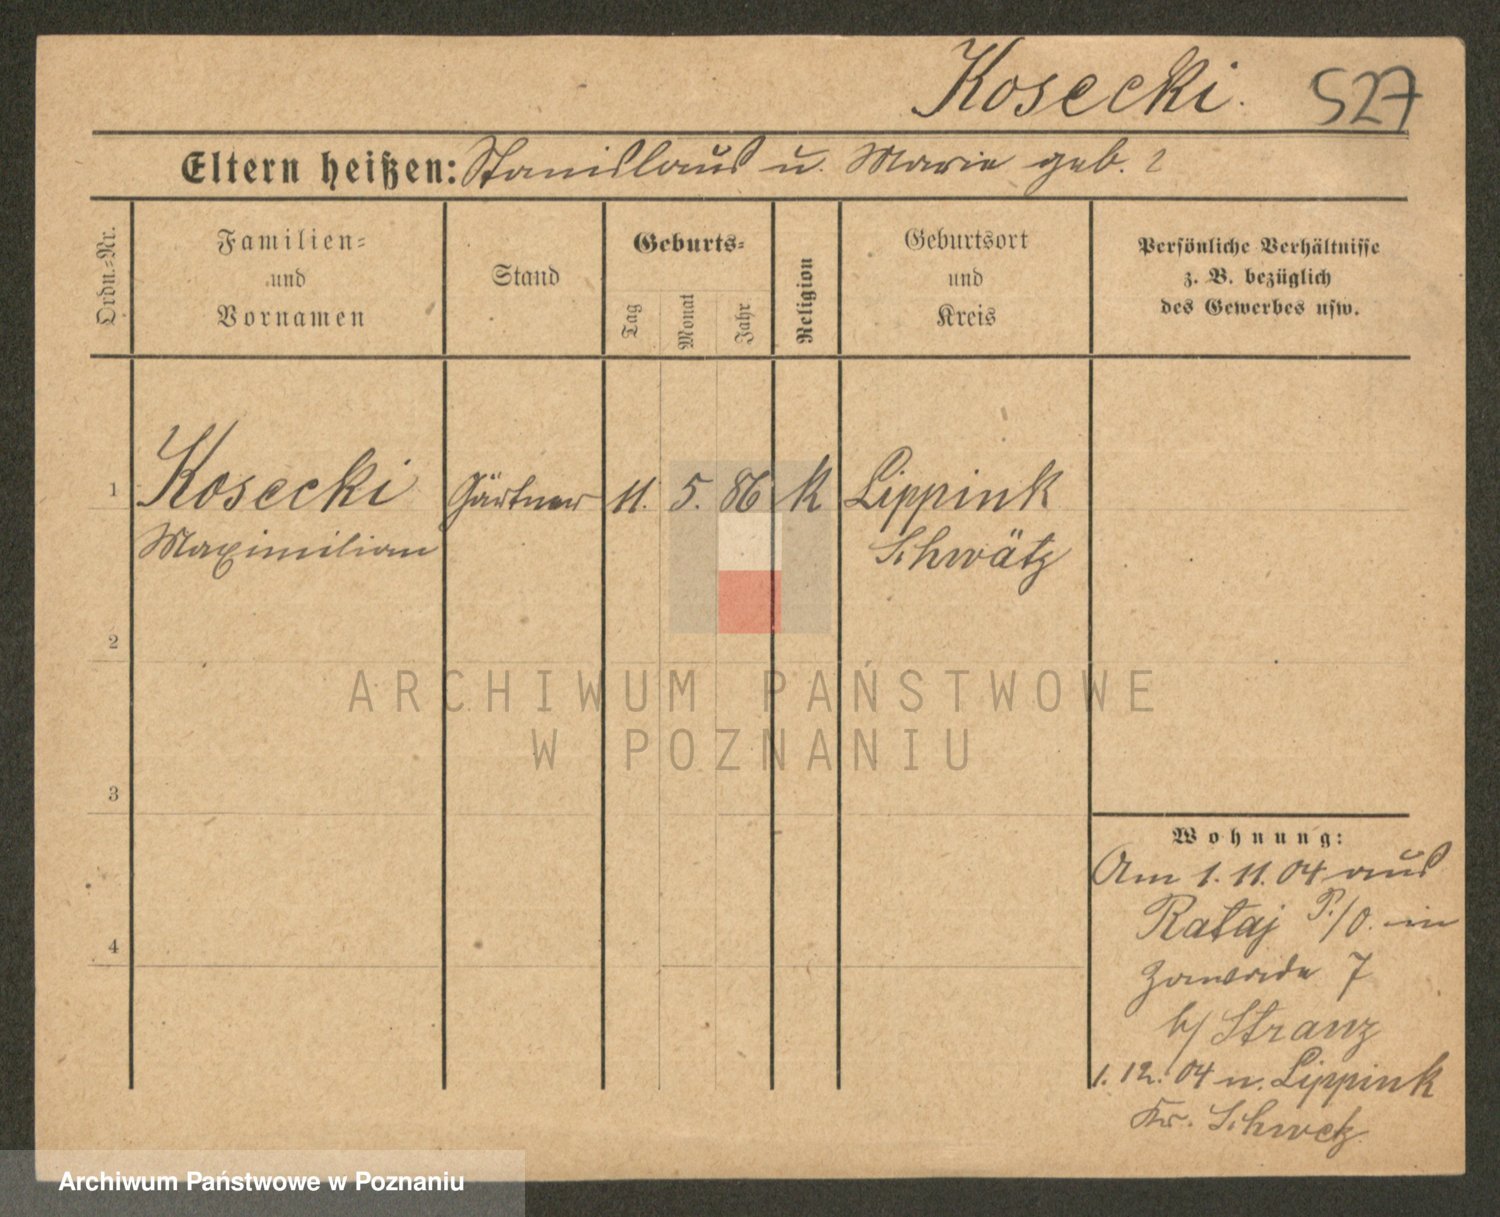 Kosecki. 527
Eltern heißen: Stanislaus u. Marie geb. ?
Ordn.-Nr.
Familien-
und
Vornamen
Stand
Geburts-
Tag
Monat
Jahr
Religion
Geburtsort
und
Kreis
Persönliche Verhältnisse
z. B. bezüglich
des Gewerbes usw.
1 Kosecki Gärtner 11. 5. 86 K Lippink
Maximilian Schwätz
2
3
4
Wohnung:
Am 1. 11. 04 aus
Rataj P./O. in
7
b/ Stranz
1. 12. 04 n. Lippink
Kr. Schwetz
ARCHIWUM PAŃSTWOWE
W POZNANIU
Archiwum Państwowe w Poznaniu